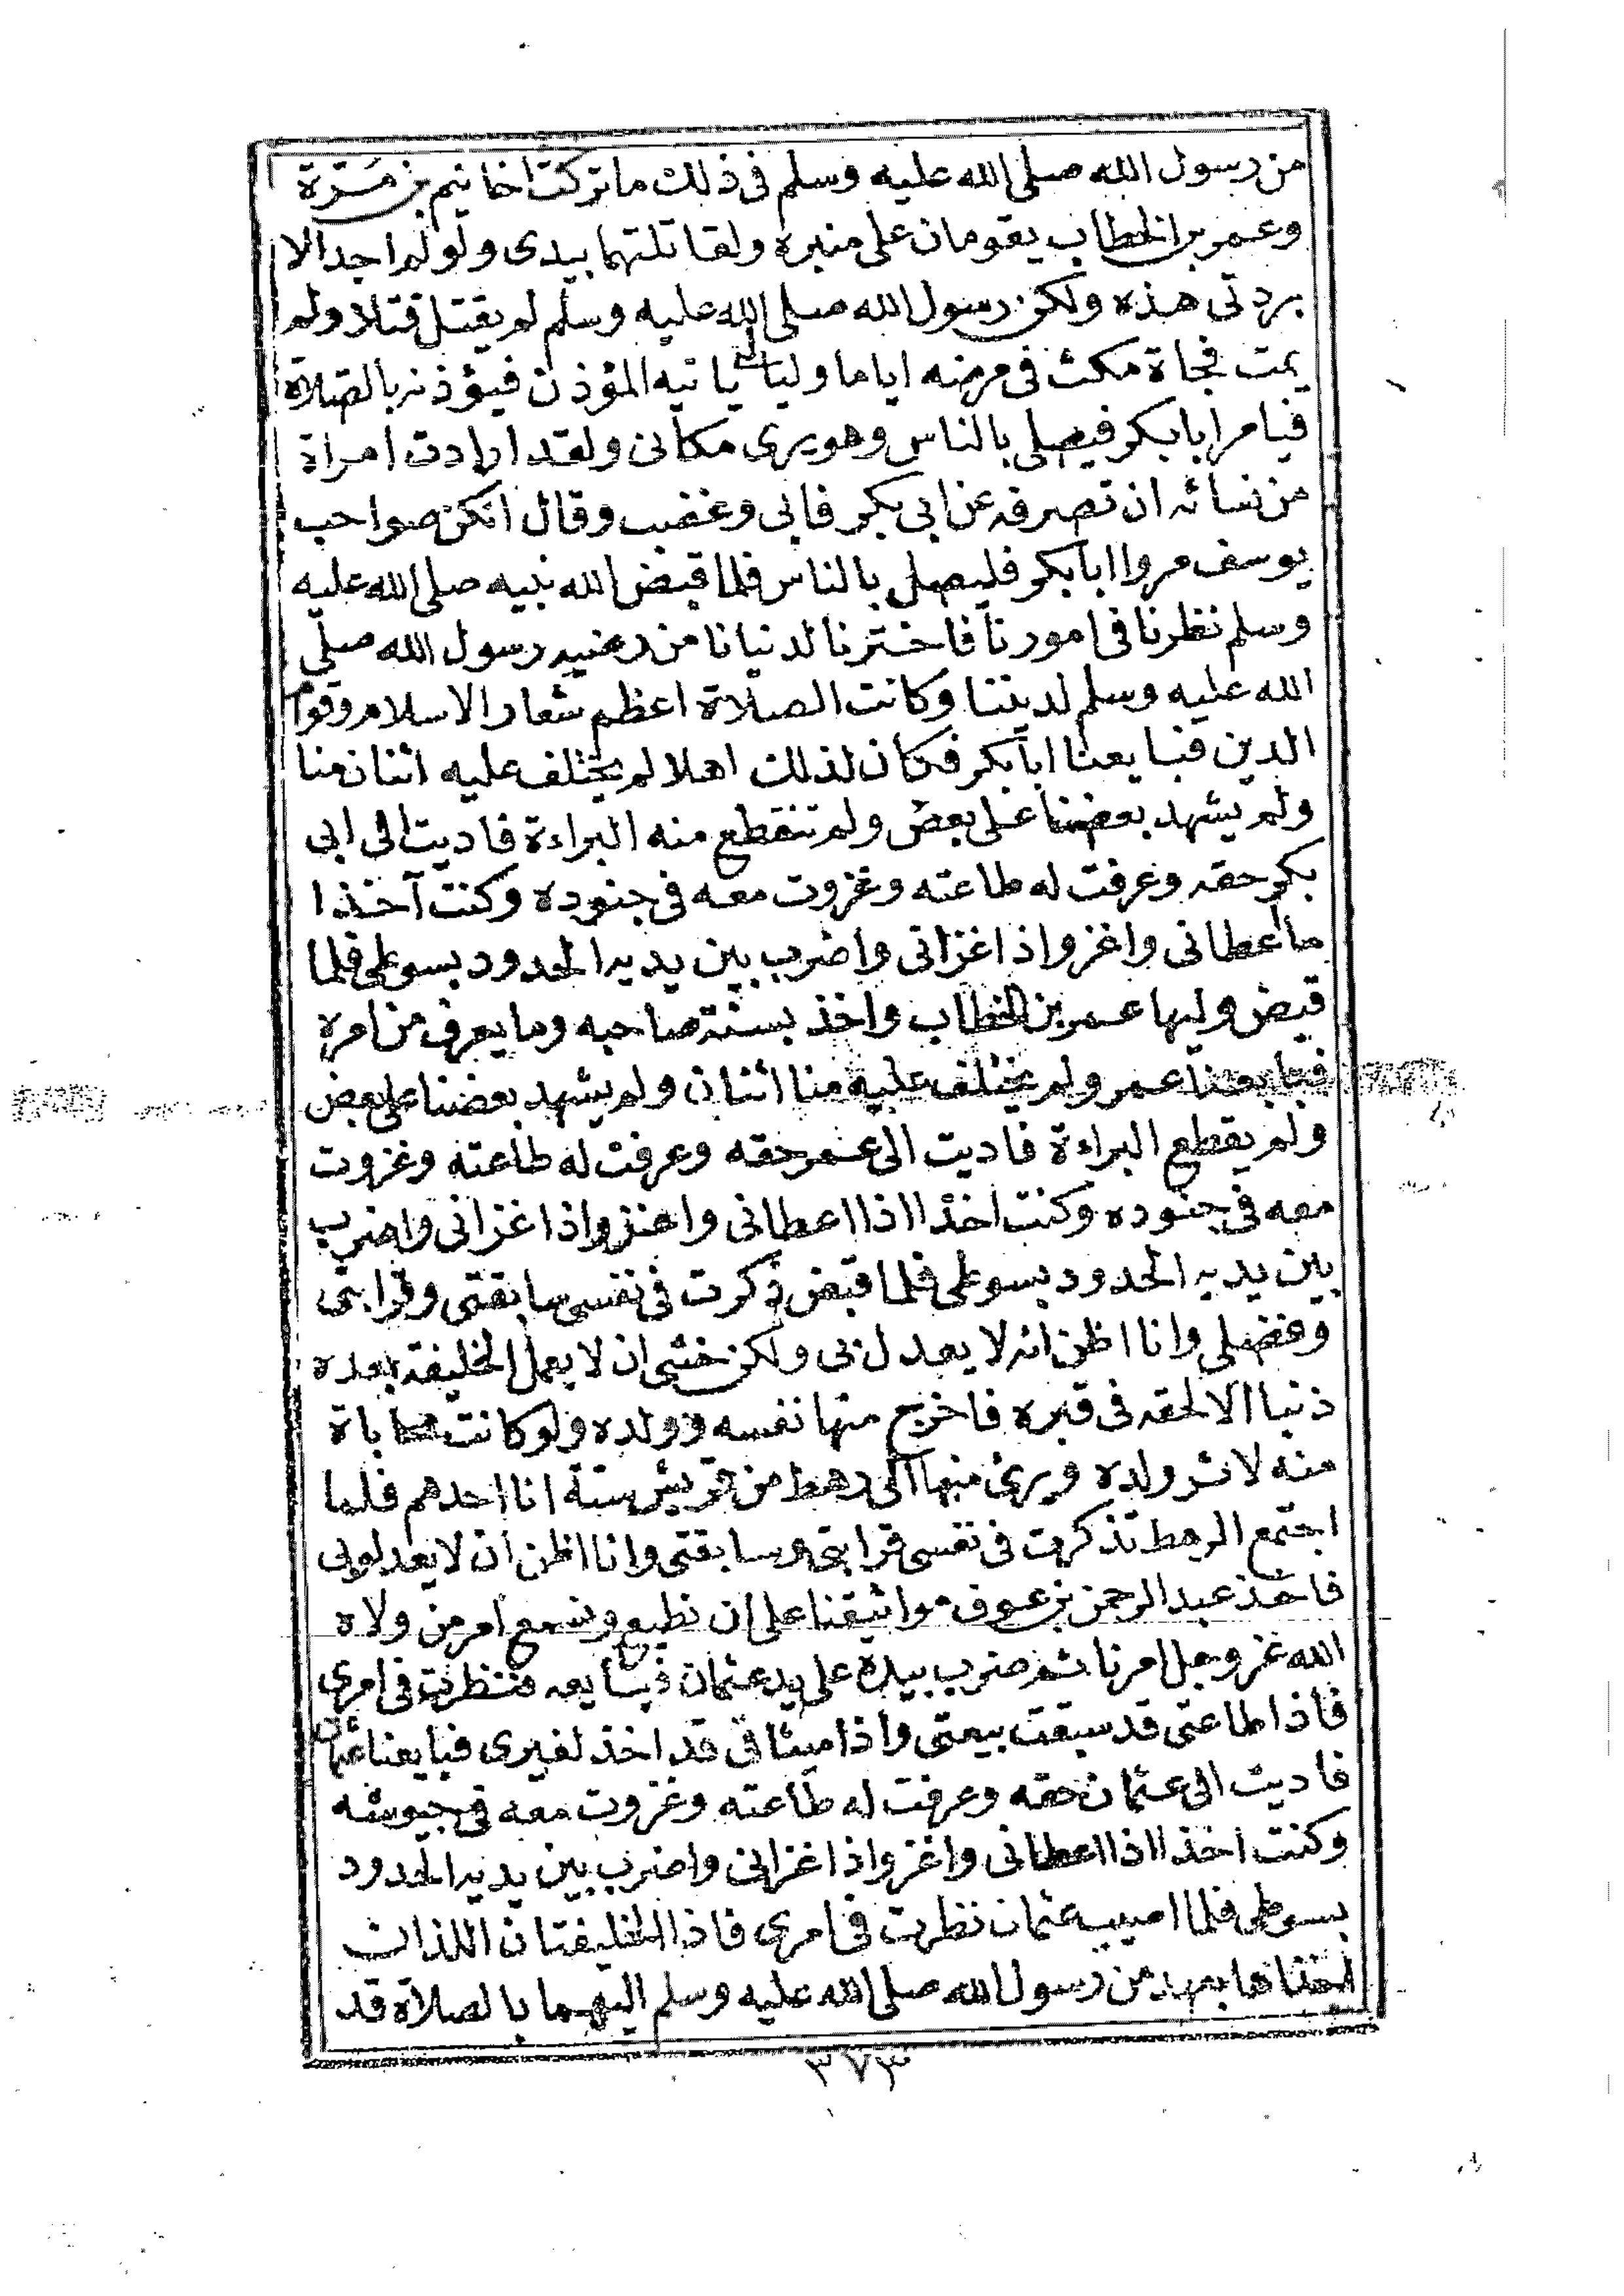 من رسول الله صلى الله عليه وسلم فى ذلك ما تركت اخا تيم بن مرة
وعمر بن الخطاب يقومان على منبره ولقاتلتهما بيدى ولو لم اجد الا
بردتى هذه ولكن رسول الله صلى الله عليه وسلم لم يقتل قتلا ولم
يمت فجاة مكث فى مرضه اياما وليالى ياتيه المؤذن فيؤذنه بالصلاة
فيامر ابا بكر فيصلى بالناس وهو يرى مكانى ولقد ارادت امراة
من نسائه ان تصرفه عن ابى بكر فابى وغضب وقال انكن صواحب
يوسف مروا ابا بكر فليصلى بالناس فلما قبض الله نبيه صلى الله عليه
وسلم نظرنا فى امورنا فاخترنا لدنيانا من رضيه رسول الله صلى
الله عليه وسلم لديننا وكانت الصلاة اعظم شعار الاسلام وقوام
الدين فبايعنا ابا بكر فكان لذلك اهلا لم يختلف عليه اثنان منا
ولم يشهد بعضنا على بعض ولم تنقطع منه البراءة فاديت الى ابى
بكر حقه وعرفت له طاعته وغزوت معه فى جنوده وكنت آخذ ا
ما اعطانى واغزو اذا غزانى واضرب بين يديه الحدود بسوطى فلما
قبض وليها عمر بن الخطاب واخذ بسنة صاحبه وما يعرف من امره
فبايعنا عمر ولم يختلف عليه منا اثنان ولم يشهد بعضنا على بعض
ولم يقطع البراءة فاديت الى عمر حقه وعرفت له طاعته وغزوت
معه فى جنوده وكنت اخذ اذا اعطانى واغزو اذا غزانى واضرب
بين يديه الحدود بسوطى فلما قبض ذكرت فى نفسى سابقتى وقرابتى
وفضلى وانا اظن انه لا يعدل بى ولكن خشى ان لا يعمل الخليفة بعده
ذنبا الا لحقه فى قبره فاخرج منها نفسه وولده ولو كانت محاباة
منه لاثر ولده وبرئ منها الى رهط من قريش ستة انا احدهم فلما
اجتمع الرهط تذكرت فى نفسى قرابتى وسابقتى وانا اظن ان لا يعدلوبى
فاخذ عبد الرحمن بن عوف مواثيقنا على ان نطيع ونسمع امر من ولاه
الله عز وجل امرنا ثم ضرب بيده على يد عثمان فبايعه فنظرت فى امرى
فاذا طاعتى قد سبقت بيعتى واذا ميثاقى قد اخذ لغيرى فبايعنا عثمان
فاديت الى عثمان حقه وعرفت له طاعته وغزوت معه فى جيوشه
وكنت اخذ اذا اعطانى واغزو اذا غزانى واضرب بين يديه الحدود
بسوطى فلما اصيب عثمان نظرت فى امرى فاذا الخليفتان اللذان
اخذاها بعهد من رسول الله صلى الله عليه وسلم اليهما بالصلاة قد
٣٧٣